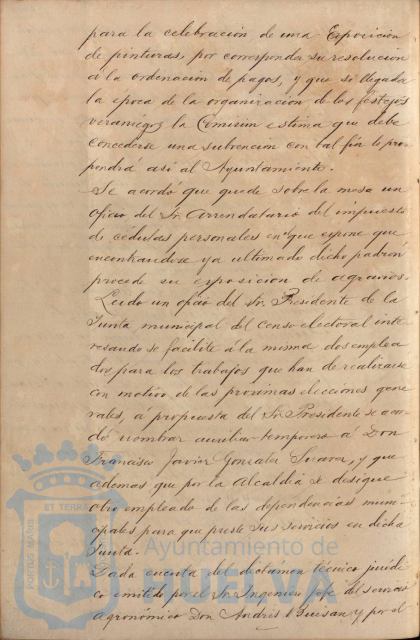 para la celebracion de una Exposicion
de pinturas, por corresponder su resolucion
á la ordenacion de pagos, y que si llegada
la epoca de la organizacion de los festejos
veraniegos la Comision estima que debe
concederse una subvencion con tal fin lo pro-
pondrá asi al Ayuntamiento.
Se acordó que quede sobre la mesa un
oficio del Sr. Arrendatario del impuesto
de cédulas personales en que expone que
encontrandose ya ultimado dicho padrón
procede su exposicion de agravios.
Leido un oficio del Sr. Presidente de la
Junta municipal del Censo electoral inte-
resando se facilite á la misma dos emplea-
dos para los trabajos que han de realizarse
con motivo de las proximas elecciones gene-
rales, á propuesta del Sr. Presidente se acor-
dó nombrar auxiliar temporero á Don
Francisco Javier Gonzalez Suarez, y que
ademas que por la Alcaldia se designe
otro empleado de las dependencias muni-
cipales para que preste sus servicios en dicha
Junta.
Dada cuenta del dictámen técnico juridi-
co emitido por el Sr. Ingeniero Jefe del servicio
agronómico Don Andrés y por el
PORTUS MARIS
ET TERRAE
Ayuntamiento de
HUELVA